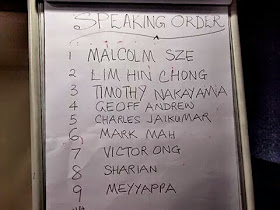 SPEAKING ORDER
1 MALCOLM SZE
2 LIM HIN CHONG
3 TIMOTHY NAKAYAMA
4 GEOFF ANDREW
5 CHARLES JAIKUMAR
6. MARK MAH
7 VICTOR ONG
8 SHARIAN
9 MEYYAPPA